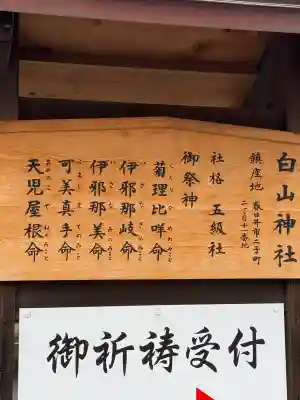 白山神社
鎮座地 春日井市二子町
二丁目十一番地
社格 五級社
御祭神
菊理比咩命
伊邪那岐命
伊邪那美命
可美真手命
天児屋根命
御祈祷受付